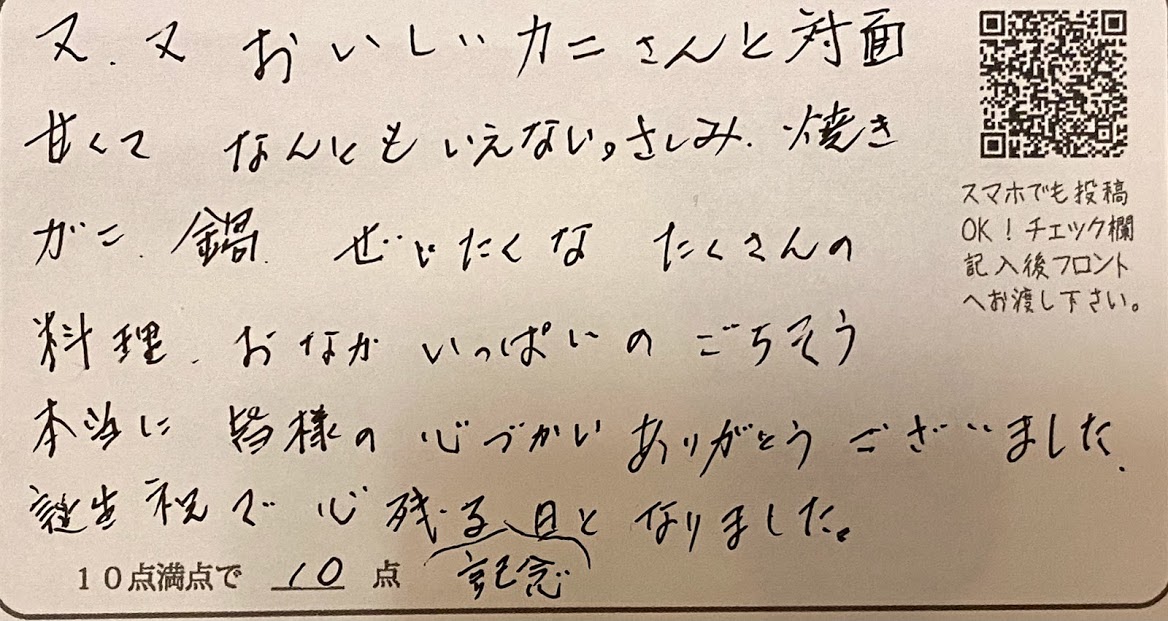 又、又 おいしいカニさんと対面
甘くて なんともいえない。さしみ、焼き
がに、鍋、ぜいたくな たくさんの
料理、おなか いっぱいの ごちそう
本当に 皆様の 心づかい ありがとう ございました、
誕生祝で 心残る、日と なりました。
記念
10点満点で 10 点
スマホでも投稿
OK!チェック欄
記入後フロント
へお渡し下さい。